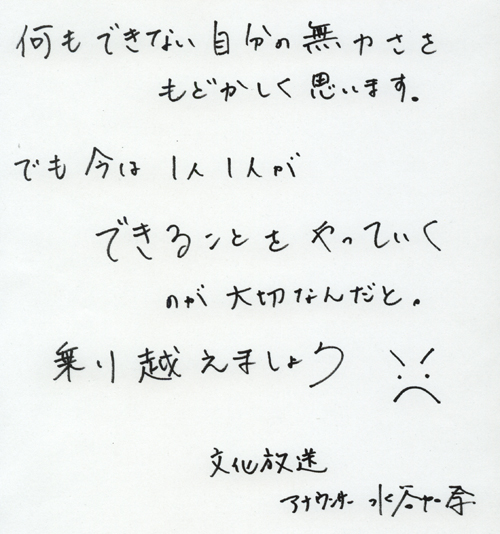 何もできない自分の無力さを
もどかしく思います。
でも今は1人1人が
できることをやっていく
のが大切なんだと。
乗り越えましょう
文化放送
アナウンサー 水谷加奈